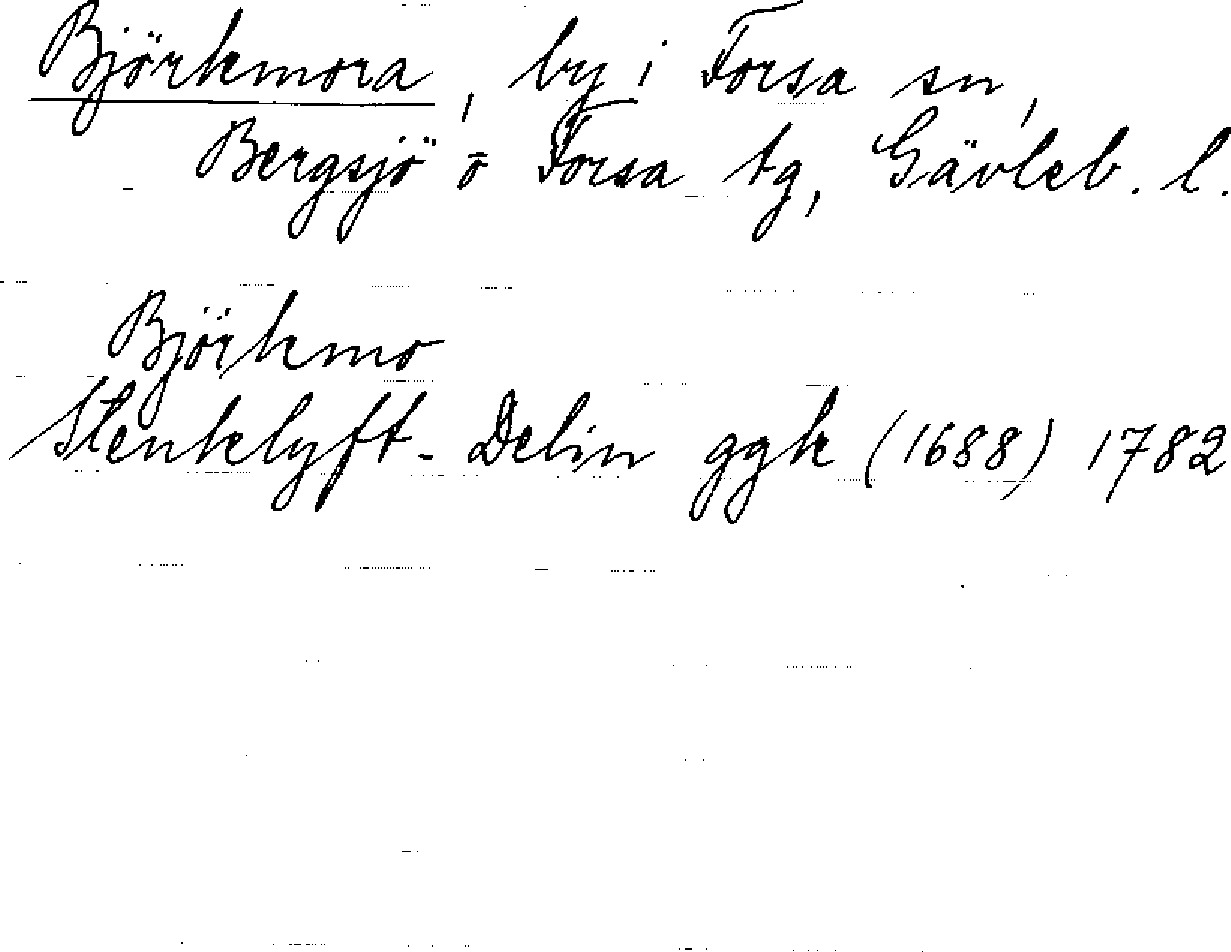 Björkmora, by i Forsa sn,
Bergsjö o Forsa tg, Gävleb. l.
Björkmo
Stenklyft-Delin ggk (1688) 1782